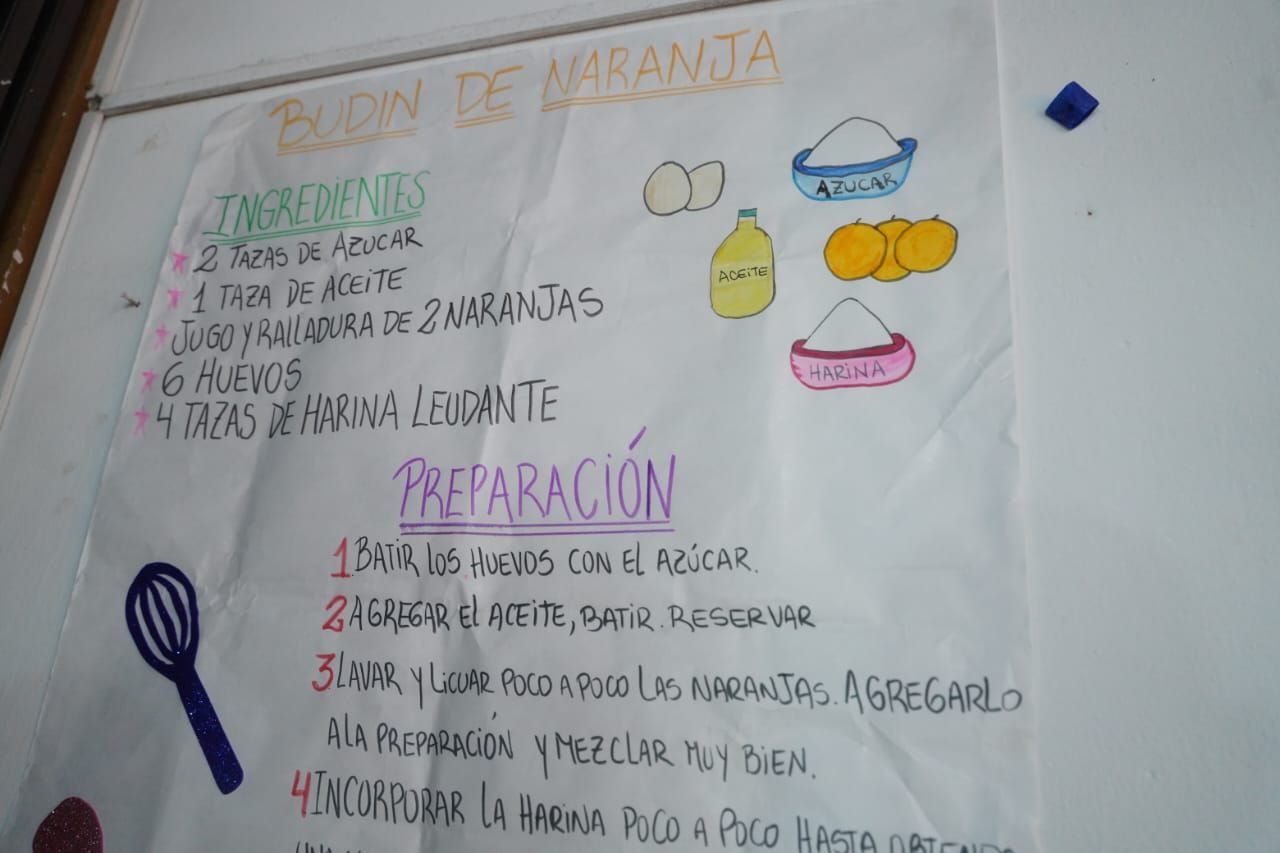 BUDIN DE NARANJA
INGREDIENTES
2 TAZAS DE AZUCAR
1 TAZA DE ACEITE
JUGO Y RALLADURA DE 2 NARANJAS
6 HUEVOS
4 TAZAS DE HARINA LEUDANTE
AZUCAR
ACEITE
HARINA
PREPARACIÓN
1 BATIR LOS HUEVOS CON EL AZÚCAR.
2 AGREGAR EL ACEITE, BATIR. RESERVAR
3 LAVAR Y LICUAR POCO A POCO LAS NARANJAS. AGREGARLO
A LA PREPARACIÓN Y MEZCLAR MUY BIEN.
4 INCORPORAR LA HARINA POCO A POCO HASTA